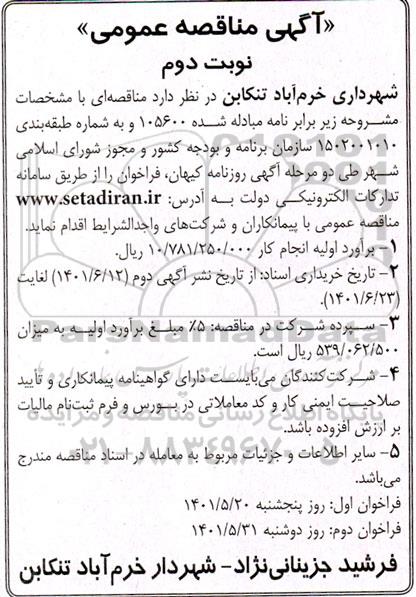 «آگهی مناقصه عمومی»
نوبت دوم
شهرداری خرم‌آباد تنکابن در نظر دارد مناقصه‌ای با مشخصات
مشروحه زیر برابر نامه مبادله شده ۱۰۵۶۰۰ و به شماره طبقه‌بندی
۱۵۰۲۰۰۱۰۱۰ سازمان برنامه و بودجه کشور و مجوز شورای اسلامی
شهر طی دو مرحله آگهی روزنامه کیهان، فراخوان را از طریق سامانه
تدارکات الکترونیکی دولت به آدرس: www.setadiran.ir
مناقصه عمومی با پیمانکاران و شرکت‌های واجدالشرایط اقدام نماید.
۱- برآورد اولیه انجام کار ۱۰/۷۸۱/۲۵۰/۰۰۰ ریال.
۲- تاریخ خریداری اسناد: از تاریخ نشر آگهی دوم (۱۴۰۱/۶/۱۲) لغایت
(۱۴۰۱/۶/۲۳).
۳- سپرده شرکت در مناقصه: ۵٪ مبلغ برآورد اولیه به میزان
۵۳۹/۰۶۲/۵۰۰ ریال است.
۴- شرکت‌کنندگان می‌بایست دارای گواهینامه پیمانکاری و تأیید
صلاحیت ایمنی کار و کد معاملاتی در بورس و فرم ثبت‌نام مالیات
بر ارزش افزوده باشد.
۵- سایر اطلاعات و جزئیات مربوط به معامله در اسناد مناقصه مندرج
می‌باشد.
فراخوان اول: روز پنجشنبه ۱۴۰۱/۵/۲۰
فراخوان دوم: روز دوشنبه ۱۴۰۱/۵/۳۱
فرشید جزینانی‌نژاد- شهردار خرم‌آباد تنکابن
پایگاه اطلاع رسانی مناقصه و مزایده
۰۲۱-۸۸۳۴۹۶۷۰-۵